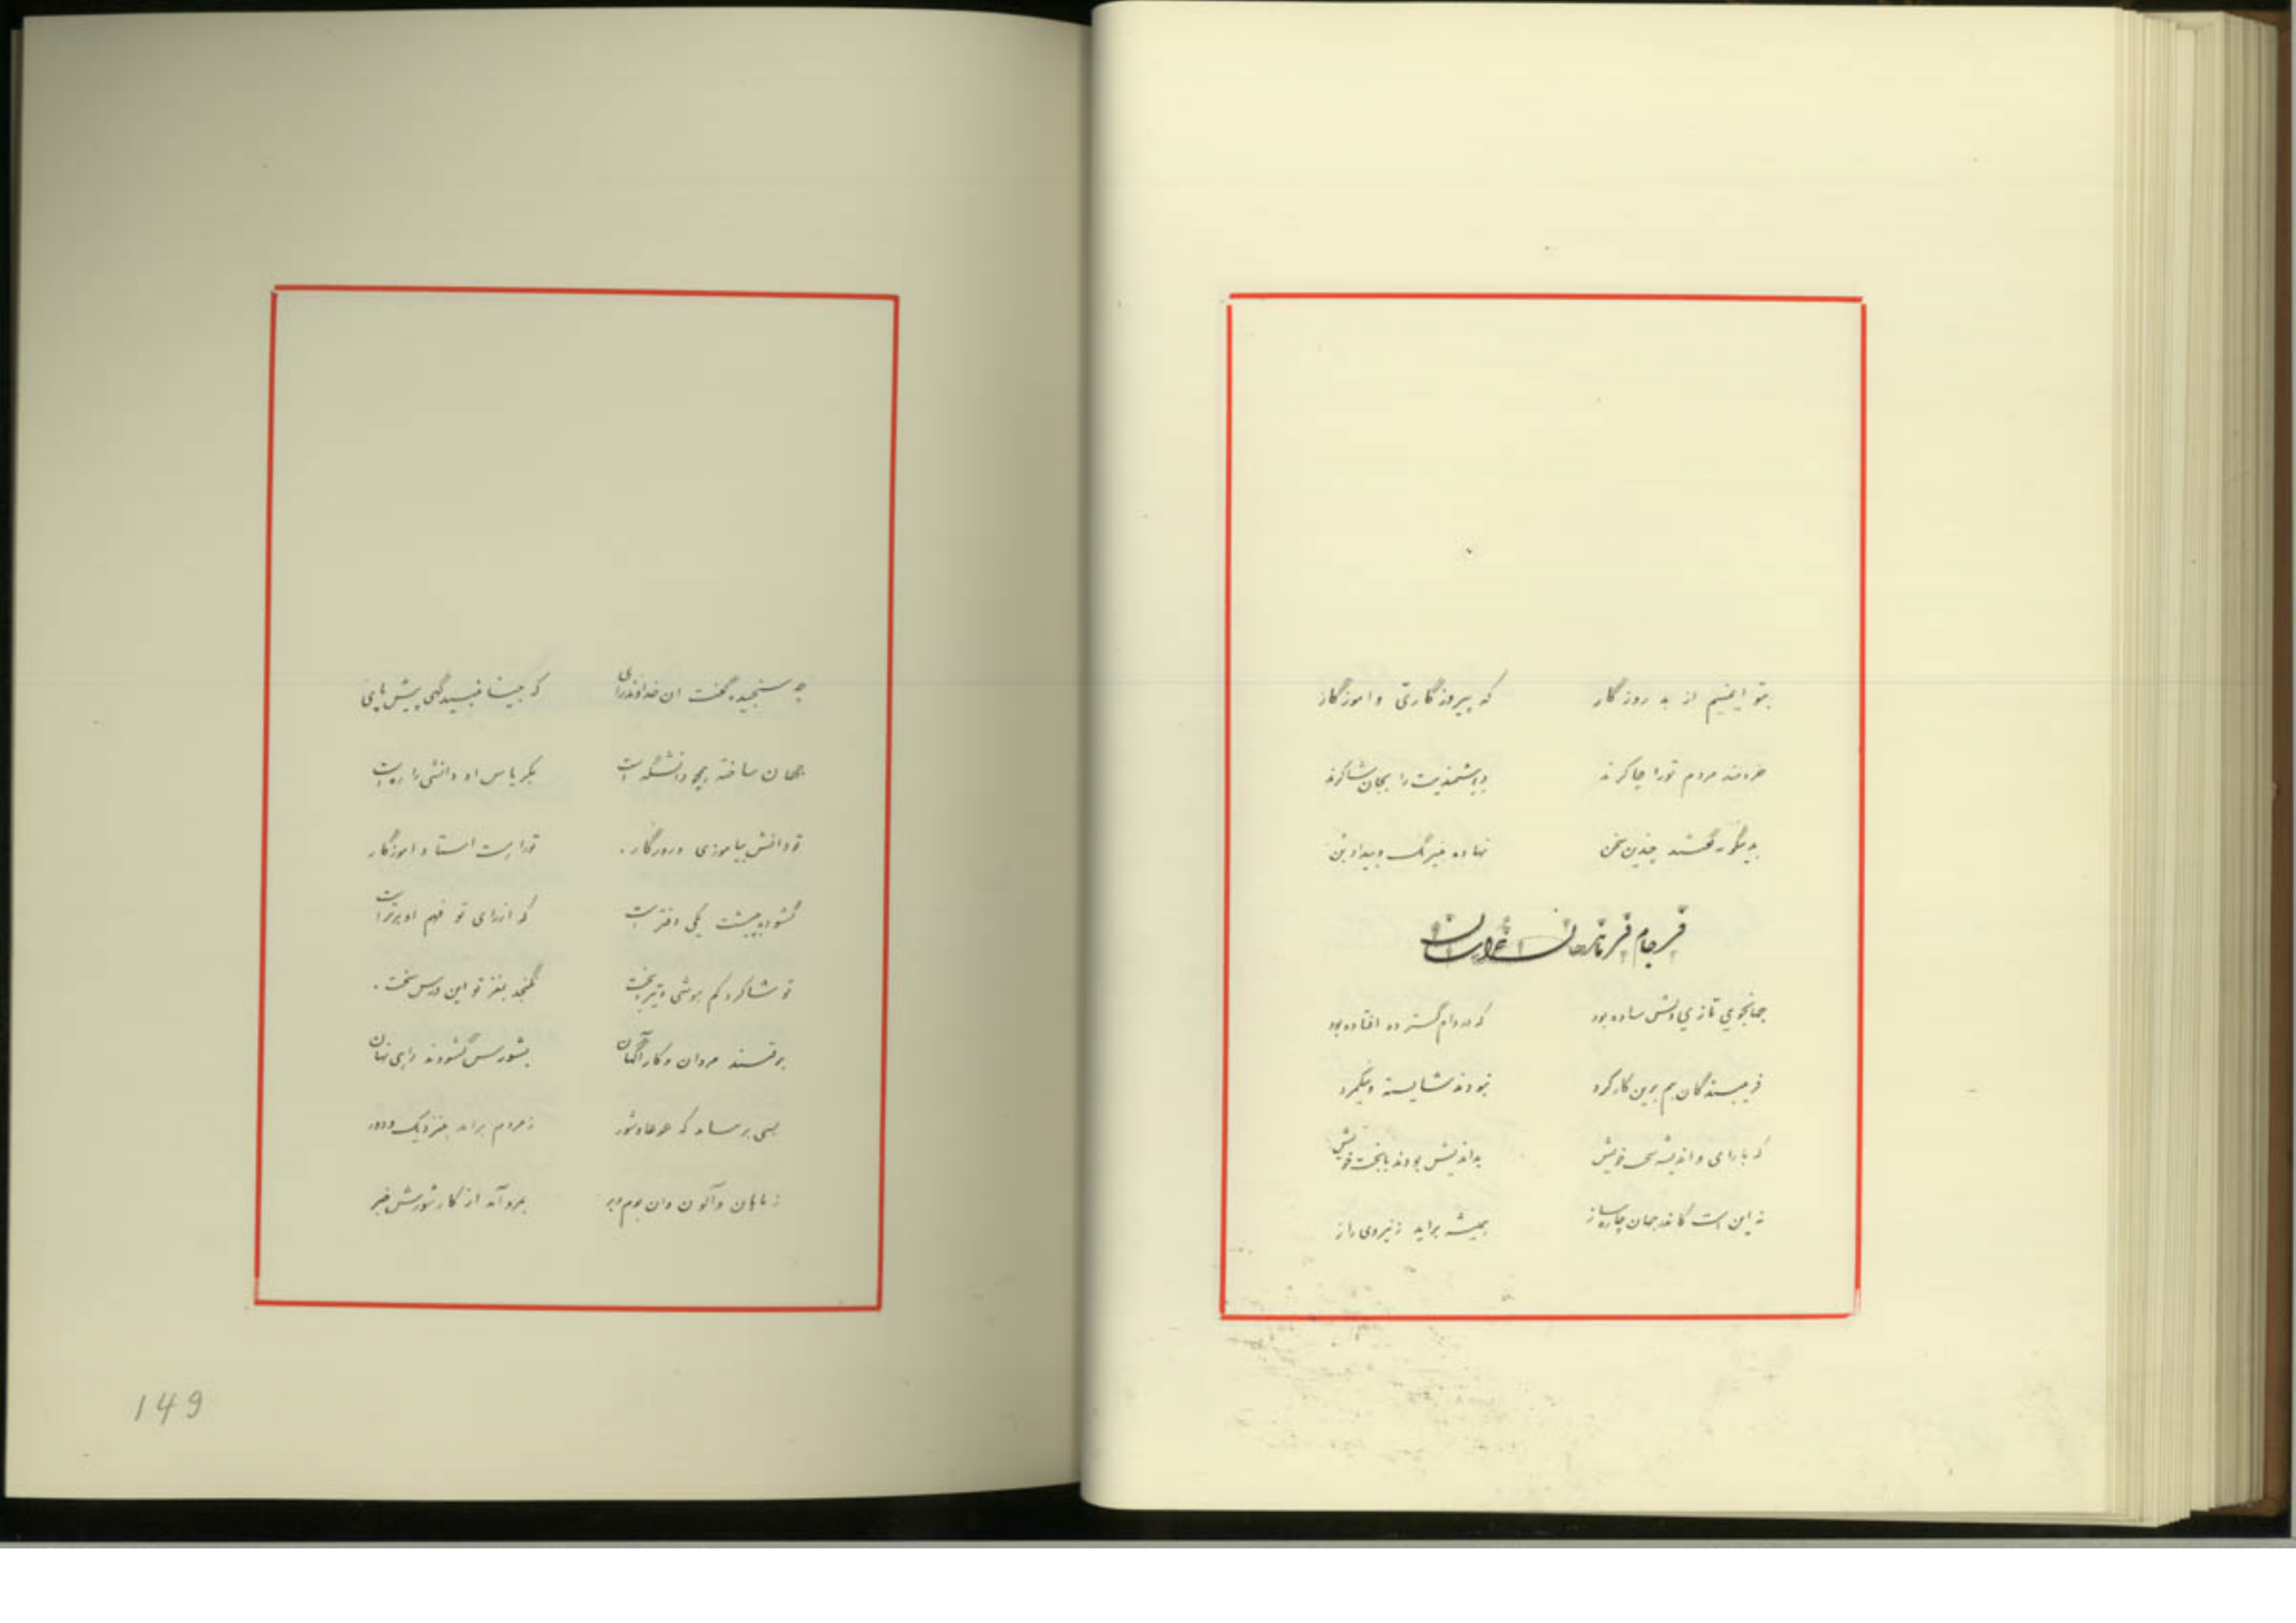 بتو ایمنیم از بد روزگار که پیروزگاری و اموزگار
خردمند مردم تورا چاکرند را بجان شاکرند
بدینگونه گفتند چندین سخن نهاده نیرنگ وبیداد بن
فرجام فرمانروایان
جهانجوی تازی دلش ساده بود که در دام گسترده افتاده بود
فریبندگان هم برین کارکرد نبودند شایسته ونیکمرد
که بارای و اندیشه خویش بداندیش بودند بابخت خویش
نه این است کاندر جهان چاره ساز همیشه براید ز نیروی راز
چه سنجیده گفت ان خداوندرای که بینا پیش پای
جهان ساخته دانشگه است او دانشی را ره است
تو دانش بیاموزی وروزگار . تورا است استاد و اموزگار
گشوده پیشت یکی دفتر است که ازرای تو فهم او برتر است
تو شاگرد کم هوشی وتیره بخت نگنجد بمغز تو این درس سخت .
برفتند مردان و کارآگهان بشورش گشودند رای نهان
بسی بر که غوغا وشور زمردم براید بنزدیک ودور
وان بوم وبر برو آمد از کار شورش خبر
149